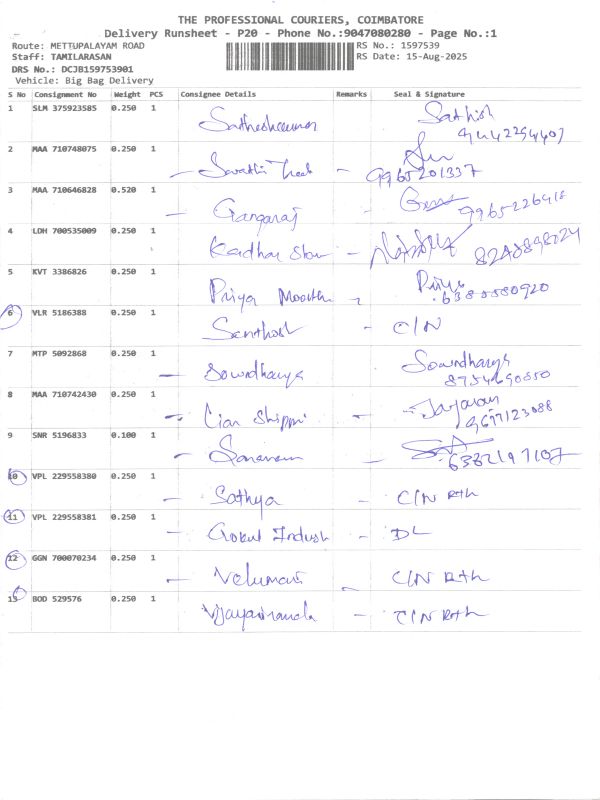 THE PROFESSIONAL COURIERS, COIMBATORE
Delivery Runsheet - P20 - Phone No.:9047080280 - Page No.:1
Route: METTUPALAYAM ROAD RS No.: 1597539
Staff: TAMILARASAN RS Date: 15-Aug-2025
DRS No.: DCJB159753901
Vehicle: Big Bag Delivery
S No Consignment No Weight PCS Consignee Details Remarks Seal & Signature
1 SLM 375923585 0.250 1 Satheshkumar Sathish
2 MAA 710748075 0.250 1 - 9965201337
3 MAA 710646828 0.520 1 - Gangaraj 9965226418
4 LDH 700535009 0.250 1
5 KVT 3386826 0.250 1 Priya Priya
6 VLR 5186388 0.250 1 Santhosh - C/N
7 MTP 5092868 0.250 1 - Sowndharya Sowndharya
8754690550
8 MAA 710742430 0.250 1 - - Jayaram
9677123088
9 SNR 5196833 0.100 1 - Saravanan -
6382197107
10 VPL 229558380 0.250 1 - Sathya - C/N Rth
11 VPL 229558381 0.250 1 - Gokul Indush - DL
12 GGN 700070234 0.250 1 - Velumani C/N Rth
13 BOD 529576 0.250 1 - C/N Rth